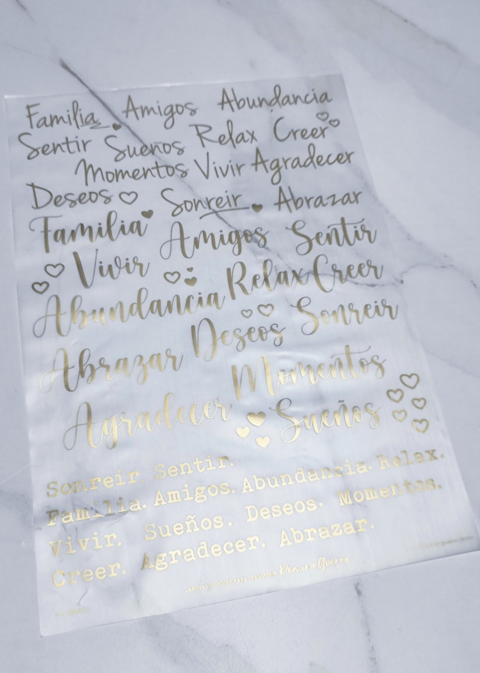 Familia Amigos Abundancia
Sentir Sueños Relax Creer
Momentos Vivir Agradecer
Deseos Sonreir Abrazar
Familia Amigos Sentir
Vivir Relax Creer
Abundancia Deseos Sonreir
Abrazar Momentos
Agradecer Sueños
Sonreir Sentir.
Familia. Amigos. Abundancia. Relax.
Vivir. Sueños. Deseos. Momentos.
Creer. Agradecer. Abrazar.